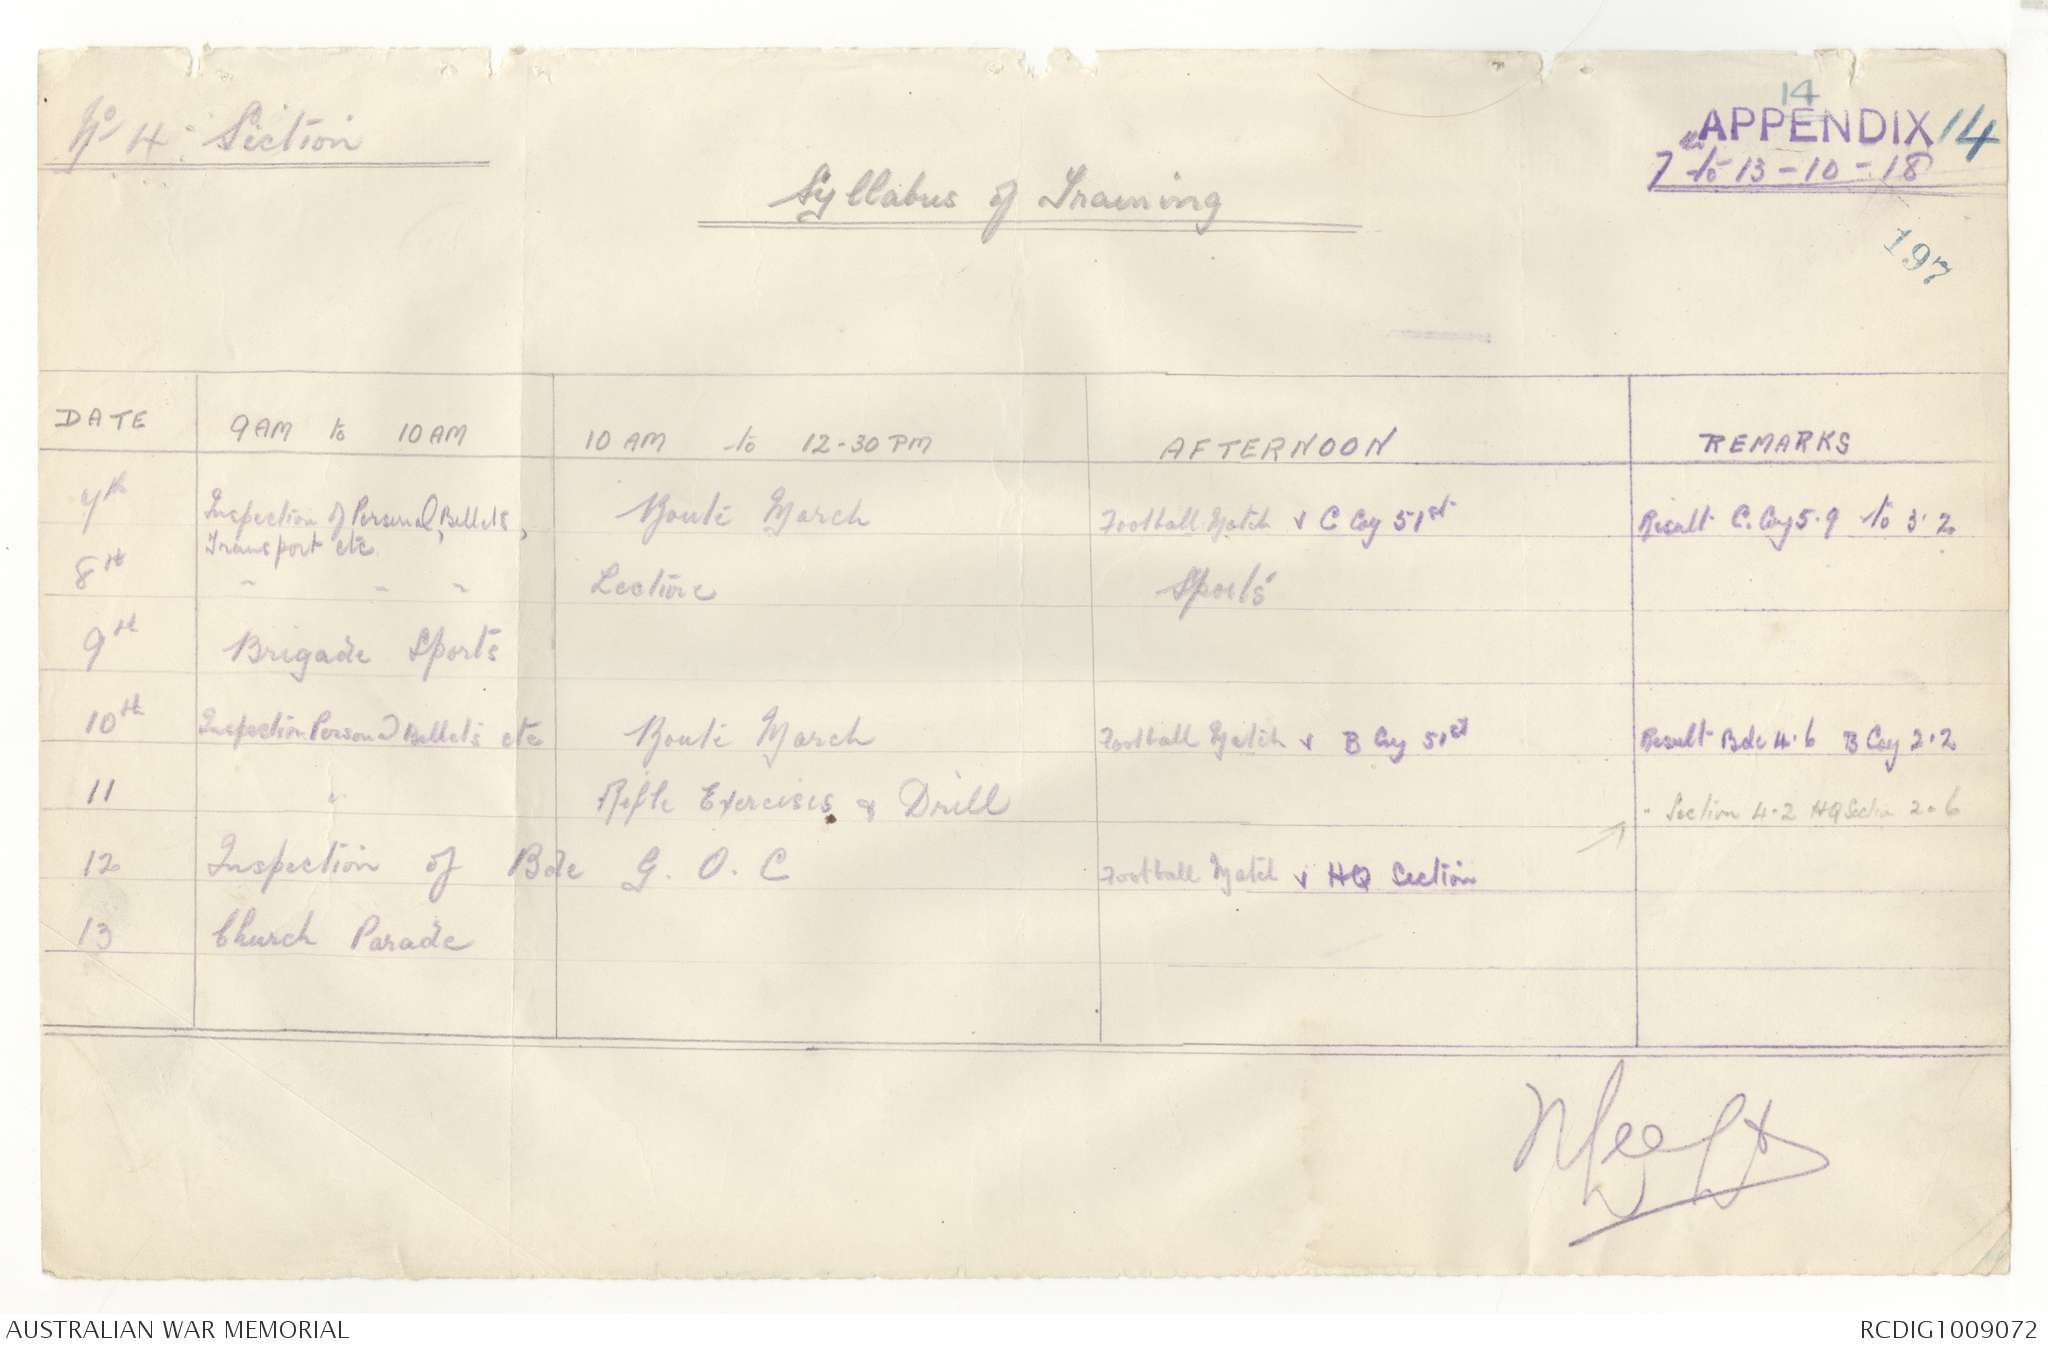 No 4 Section
14
APPENDIX 14
7 to 13-10-18
Syllabus of Training
197
DATE 9AM to 10AM 10AM to 12-30PM AFTERNOON REMARKS
7th Inspection of Personal, Billets, Route March Football Match v C Coy 51st Result C. Coy 5.9 to 3.2
Transport etc
8th " " " Lecture Sports
9th Brigade Sports
10th Inspection Personal Billets etc Route March Football Match v B Coy 51st Result Bde 4.6 B Coy 2.2
11 " Rifle Exercises & Drill " Section 4.2 HQ Section 2.6
12 Inspection of Bde G.O.C Football Match v HQ Section
13 Church Parade
AUSTRALIAN WAR MEMORIAL
RCDIG1009072